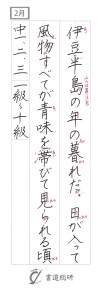 2月
伊豆半島の年の暮れだ。日が入って
風物すべてが青味を帯びて見られる頃
中一、二、三 一級〜十級
書道総研